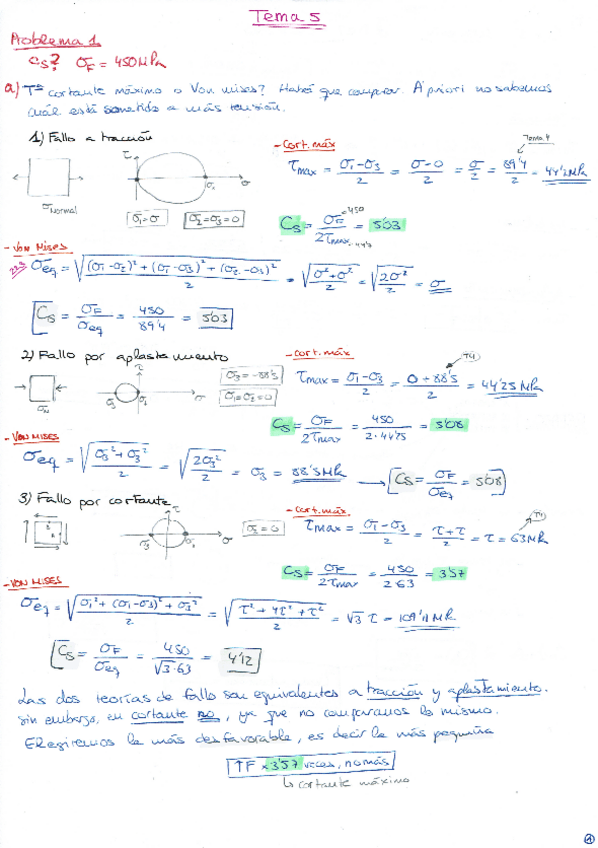 Tema 5
Problema 1
Cs? σF = 450 MPa
a) Tª cortante máximo o Von mises? Habrá que comparar. A priori no sabemos
cuál está sometido a más tensión.
1) Fallo a tracción
- Cort. máx
τ
σ1
σ
σNormal
σ1 = σ
σ2 = σ3 = 0
Tema 4
τmax = (σ1 - σ3)/2 = (σ - 0)/2 = σ/2 = 89'4/2 = 44'7 MPa
Cs = σF/2τmax = 5'03
450
- Von Mises
σeq = √(((σ1 - σ2)² + (σ1 - σ3)² + (σ2 - σ3)²)/2) = √((σ² + σ²)/2) = √(2σ²/2) = σ
Cs = σF/σeq = 450/89'4 = 5'03
2) Fallo por aplastamiento
- cort. máx
τ
σ3
σ1
σ
σ3 = -88'5
σ1 = σ2 = 0
T4
τmax = (σ1 - σ3)/2 = (0 + 88'5)/2 = 44'25 MPa
Cs = σF/2τmax = 450/2·44'25 = 5'08
- Von Mises
σeq = √((σ3² + σ3²)/2) = √(2σ3²/2) = σ3 = 88'5 MPa → Cs = σF/σeq = 5'08
3) Fallo por cortante
- cort. máx.
τ
σ3
σ1
σ
σ2 = 0
T4
τmax = (σ1 - σ3)/2 = (τ + τ)/2 = τ = 63 MPa
Cs = σF/2τmax = 450/2·63 = 3'57
- Von Mises
σeq = √((σ1² + (σ1 - σ3)² + σ3²)/2) = √((τ² + 4τ² + τ²)/2) = √3 τ = 109'11 MPa
Cs = σF/σeq = 450/√3·63 = 4'12
Las dos teorías de fallo son equivalentes a tracción y aplastamiento.
sin embargo, en cortante no, ya que no comparamos lo mismo.
Elegiremos la más desfavorable, es decir la más pequeña
↑F x 3'57 veces, no más
↳ cortante máximo
1